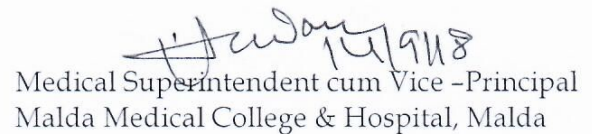 14/9/18
Medical Superintendent cum Vice –Principal
Malda Medical College & Hospital, Malda